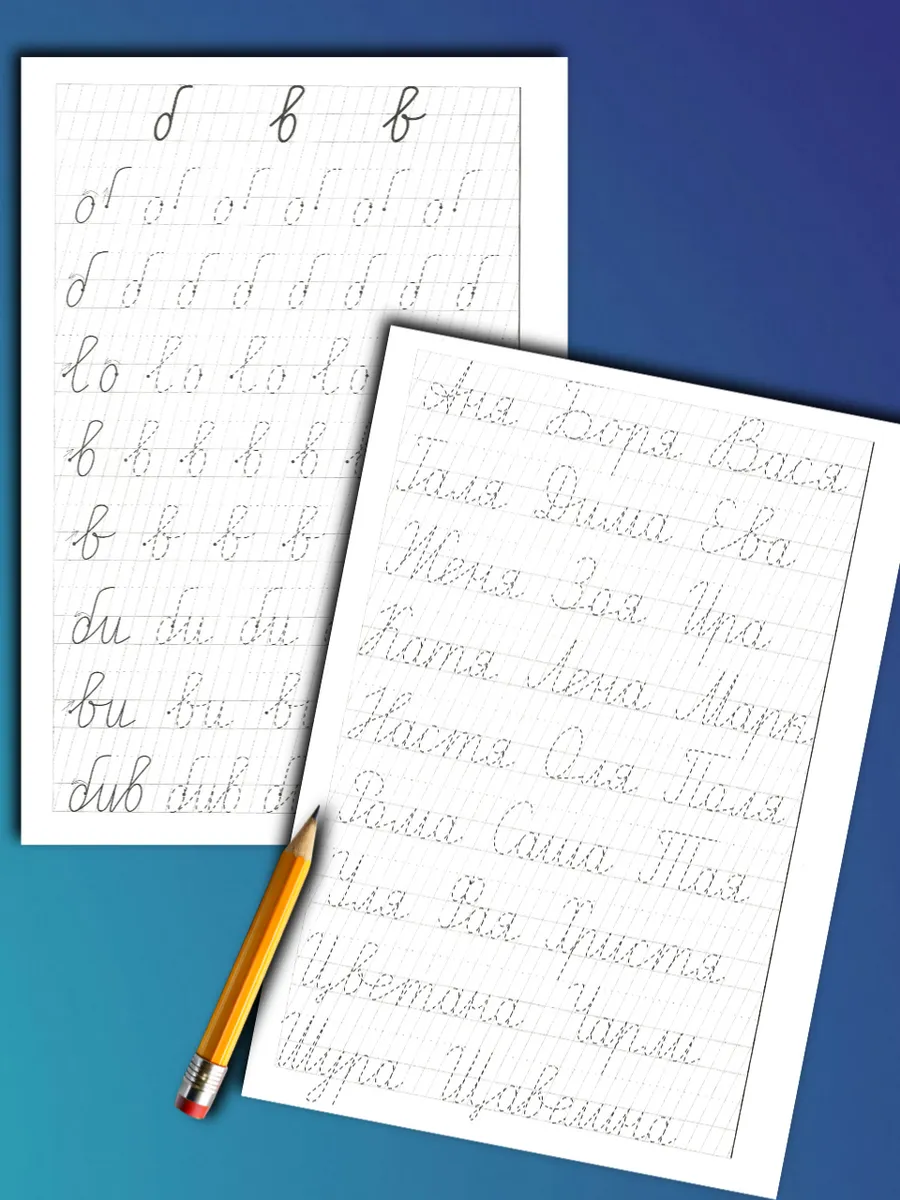 б в в
б б б б б б
б б б б б б б б
в в в в
в в в в в
в в в в
би би би
ви ви ви
бив бив
Аня Боря Вася
Галя Дима Ева
Женя Зоя Ира
Катя Лена Марк
Настя Оля Поля
Рома Саша Тоя
Уля Фая Христя
Цветана Чарли
Шура Щавелина